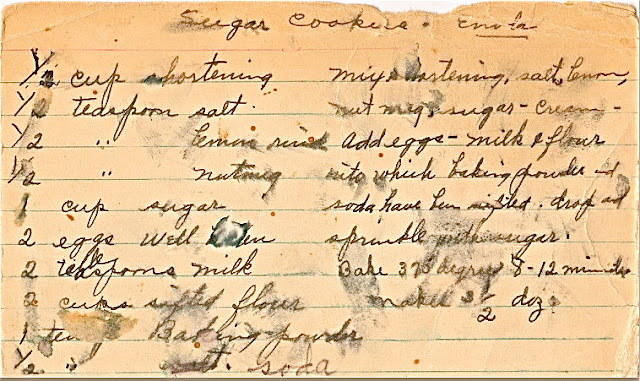 Sugar Cookies. Enola
1/2 cup shortening
1/2 teaspoon salt.
1/2 " lemon rind
1/2 " nutmeg
1 cup sugar
2 eggs well beaten
2 milk
2 cups sifted flour
1 tea Baking powder
1/2 " soda
mix shortening, salt, lemon,
nutmeg & sugar - cream -
add eggs - milk & flour
into which baking powder and
soda have been sifted. drop and
sprinkle with sugar.
Bake 375 degrees 8-12 minutes
makes 3 1/2 doz.